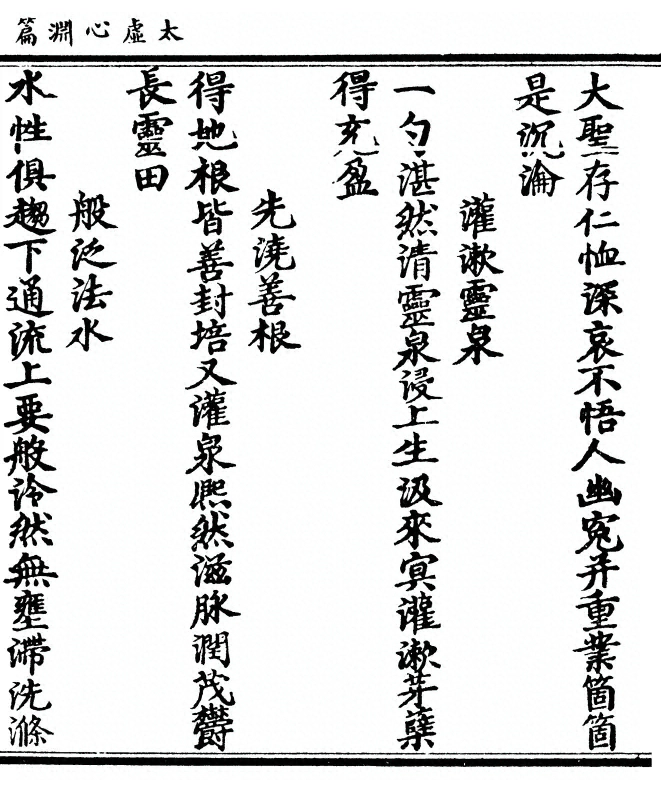 太虛心淵篇
大聖存仁恤深哀不悟人幽寃并重業箇箇
是沉淪
灌漱靈泉
一勺湛然清靈泉浸上生汲來㝠灌漱芽蘖
得充盈
先澆善根
得地根皆善封培又灌泉熈然滋脉潤茂欝
長靈田
般泛法水
水性俱趨下通流上要般泠然無壅滯洗滌